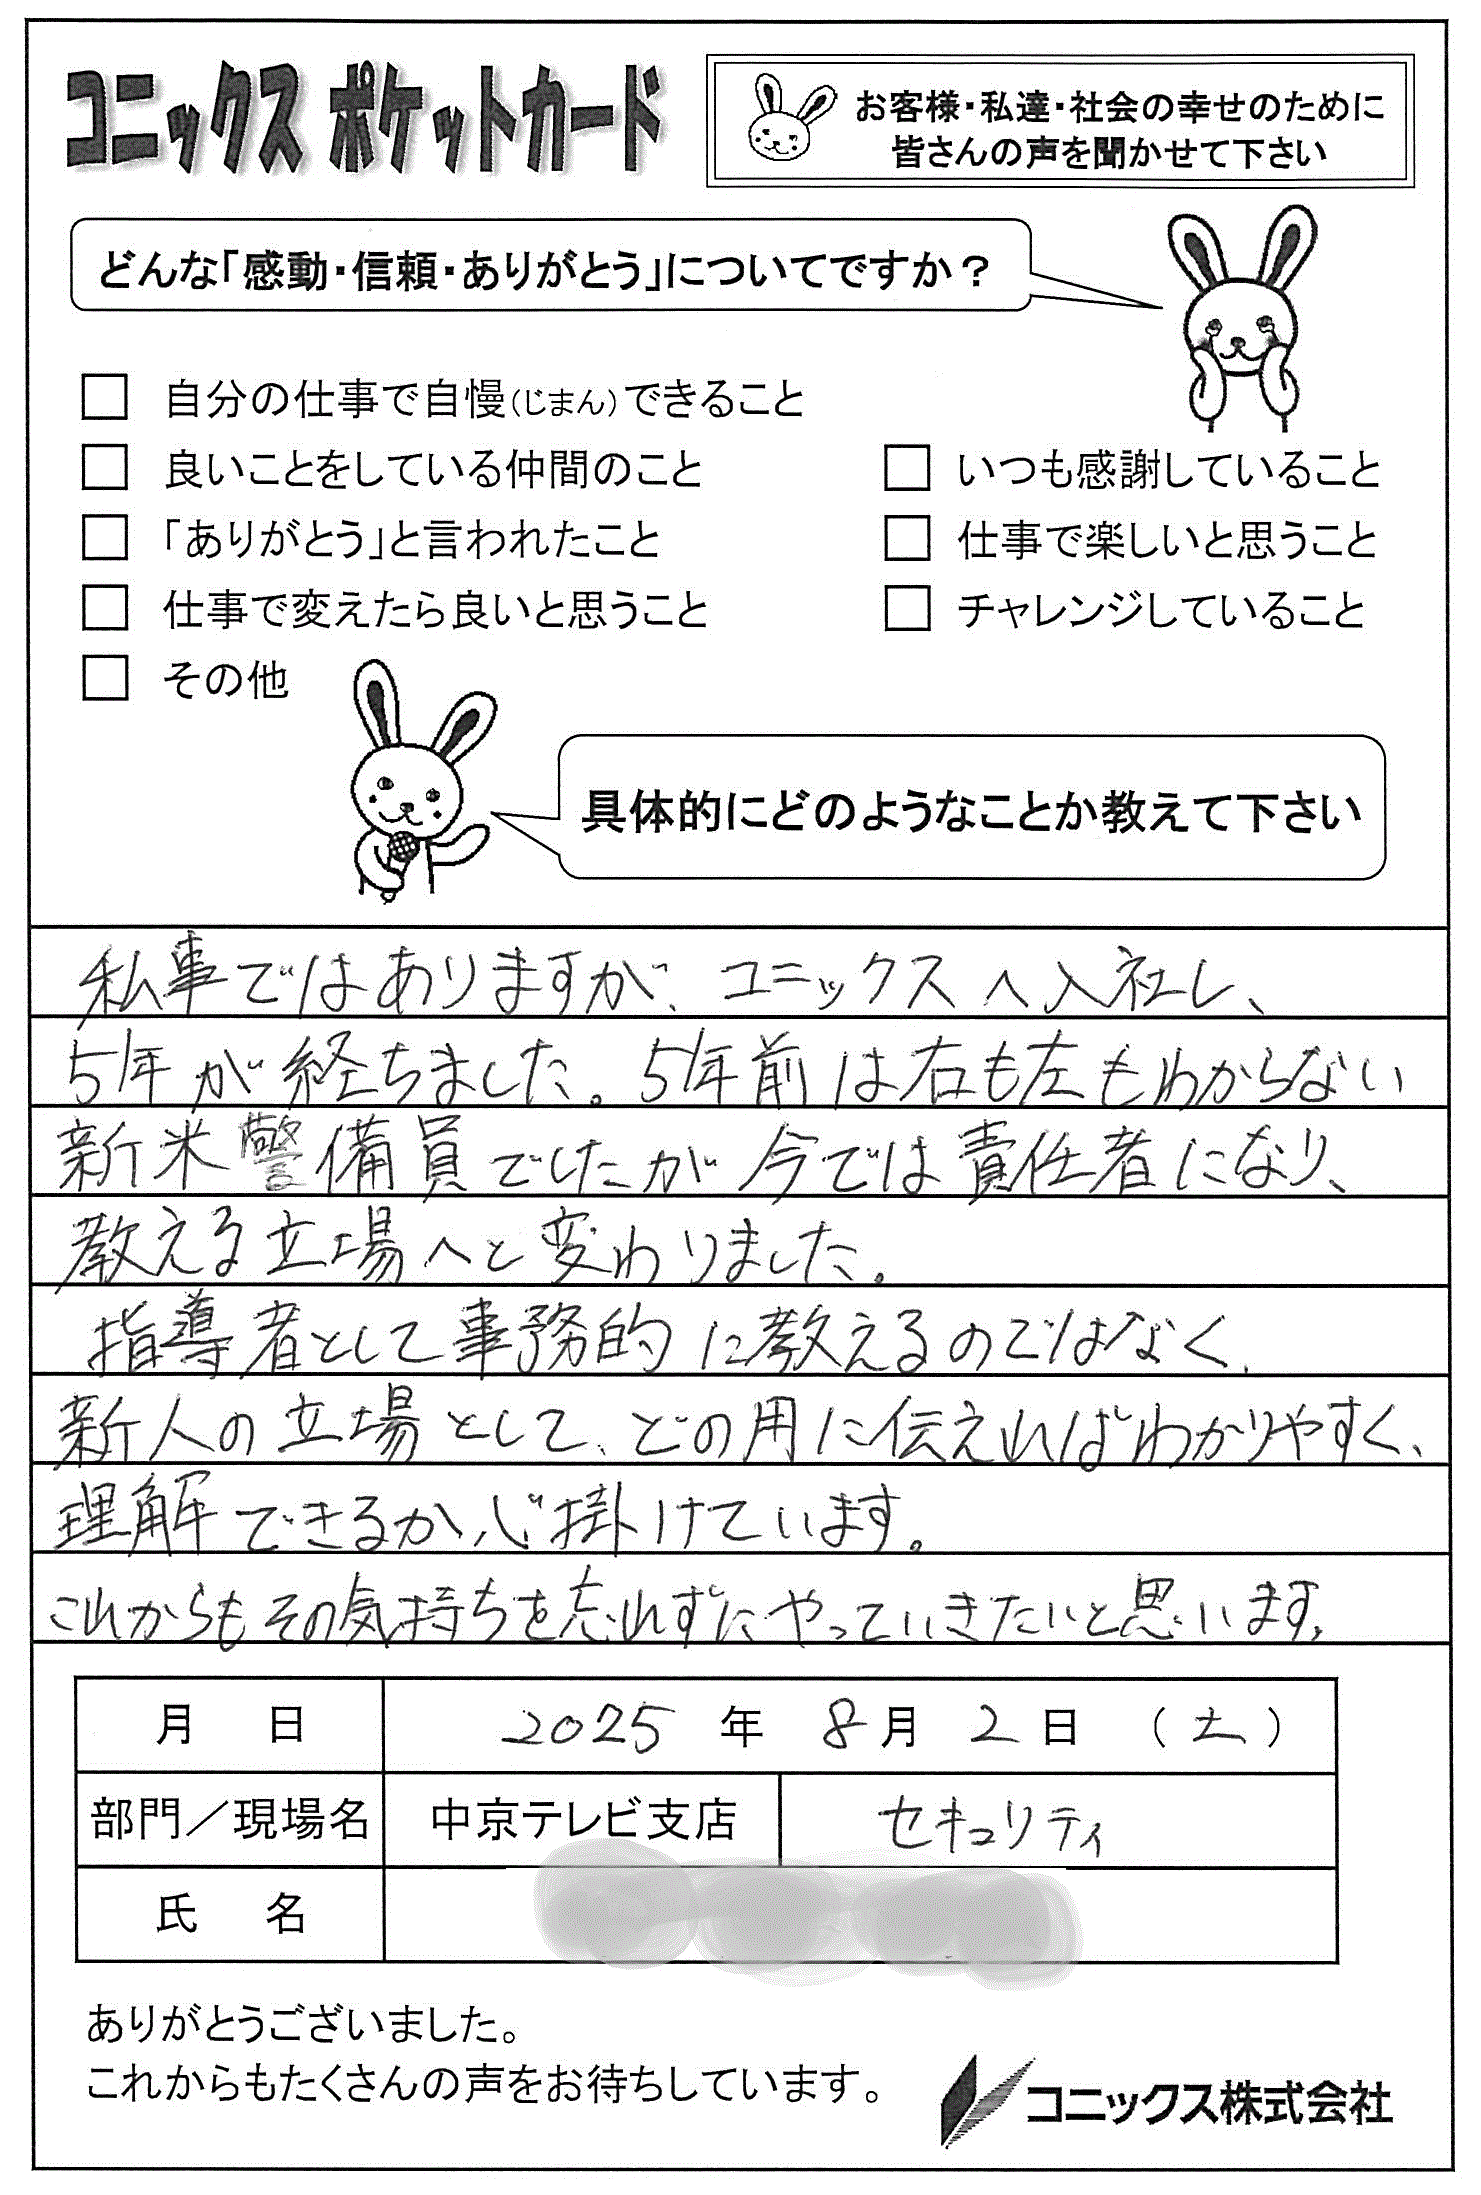 コニックス ポケットカード
お客様・私達・社会の幸せのために
皆さんの声を聞かせて下さい
どんな「感動・信頼・ありがとう」についてですか？
自分の仕事で自慢(じまん)できること
良いことをしている仲間のこと
いつも感謝していること
「ありがとう」と言われたこと
仕事で楽しいと思うこと
仕事で変えたら良いと思うこと
チャレンジしていること
その他
具体的にどのようなことか教えて下さい
私事ではありますが、コニックスへ入社し、
5年が経ちました。5年前は右も左もわからない
新米警備員でしたが今では責任者になり、
教える立場へと変わりました。
指導者として事務的に教えるのではなく、
新人の立場として、どの用に伝えればわかりやすく、
理解できるか心掛けています。
これからもその気持ちを忘れずにやっていきたいと思います。
月 日 2025 年 8 月 2 日 （土）
部門／現場名 中京テレビ支店 セキュリティ
氏 名
ありがとうございました。
これからもたくさんの声をお待ちしています。
コニックス株式会社